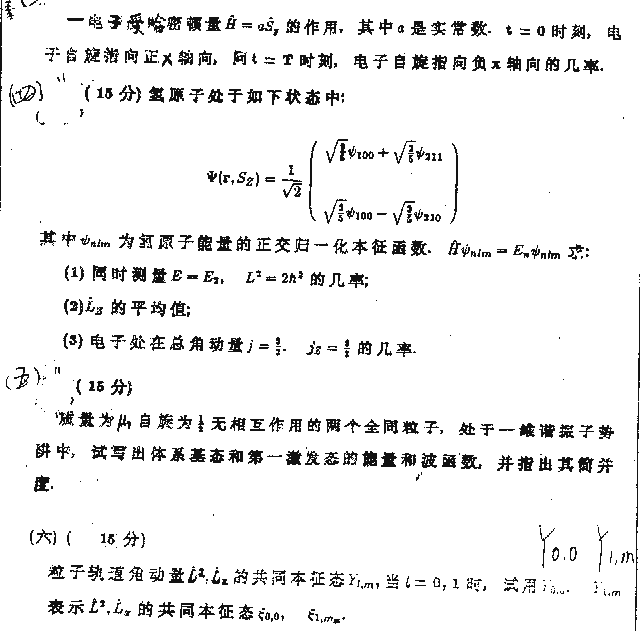 一电子受哈密顿量Ĥ = aŜ 的作用, 其中 a 是实常数. t = 0 时刻, 电
子自旋指向正X轴向, 问 t = T 时刻, 电子自旋指向负x轴向的几率.
(四) (15分) 氢原子处于如下状态中:
Ψ(r,S_Z) = 1/√2 ( ψ₁₀₀ + ψ₂₁₁
ψ₁₀₀ − ψ₂₁₀ )
其中 ψnlm 为氢原子能量的正交归一化本征函数. Ĥψnlm = Enψnlm 求:
(1) 同时测量 E = E₂, L² = 2ħ² 的几率;
(2) L̂_Z 的平均值;
(3) 电子处在总角动量 j = 的几率.
(五) (15分)
质量为μ, 自旋为½无相互作用的两个全同粒子, 处于一维谐振子势
阱中, 试写出体系基态和第一激发态的能量和波函数, 并指出其简并
度.
(六) ( 15分)
Y0.0 Y1,m
粒子轨道角动量L̂², L̂z 的共同本征态Yl,m, 当 l = 0, 1 时, 试用 Y0,0, Y1,m
表示 L̂², L̂x 的共同本征态 ξ0,0, ξ1,mx.